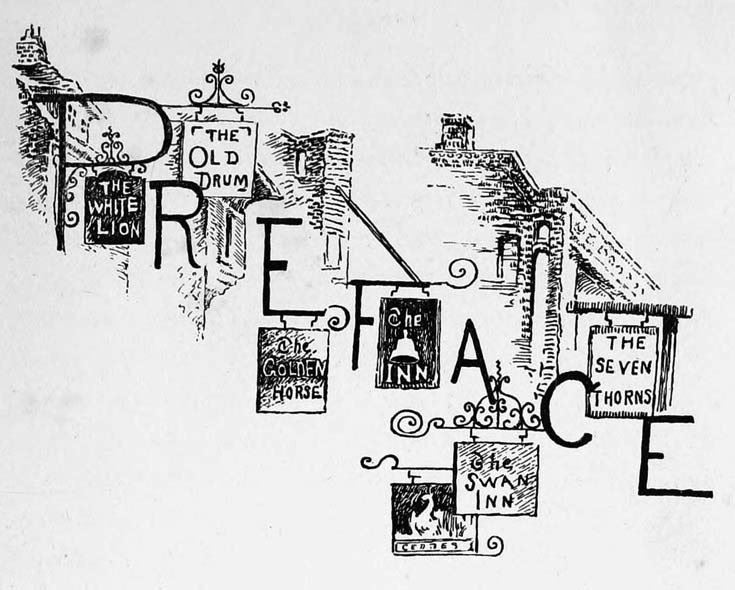 PREFACE
THE
WHITE
LION
THE
OLD
DRUM
The
GOLDEN
HORSE
The
INN
The
SWAN
INN
THE
SEVEN
THORNS